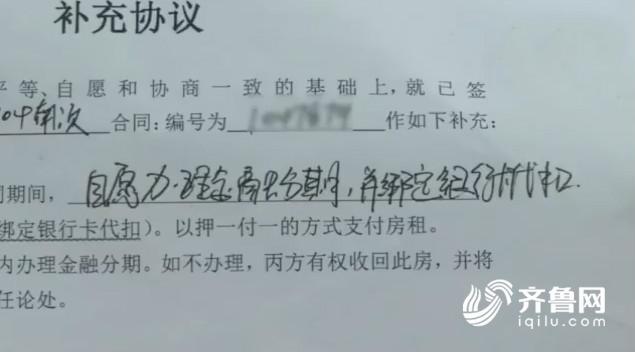 补充协议
平等、自愿和协商一致的基础上,就已签
104南次 合同:编号为 作如下补充:
同期间,自愿办理 分期,并绑定银行代扣
绑定银行卡代扣)。以押一付一的方式支付房租。
内办理金融分期。如不办理,丙方有权收回此房,并将
任论处。
齐鲁网
iqilu.com